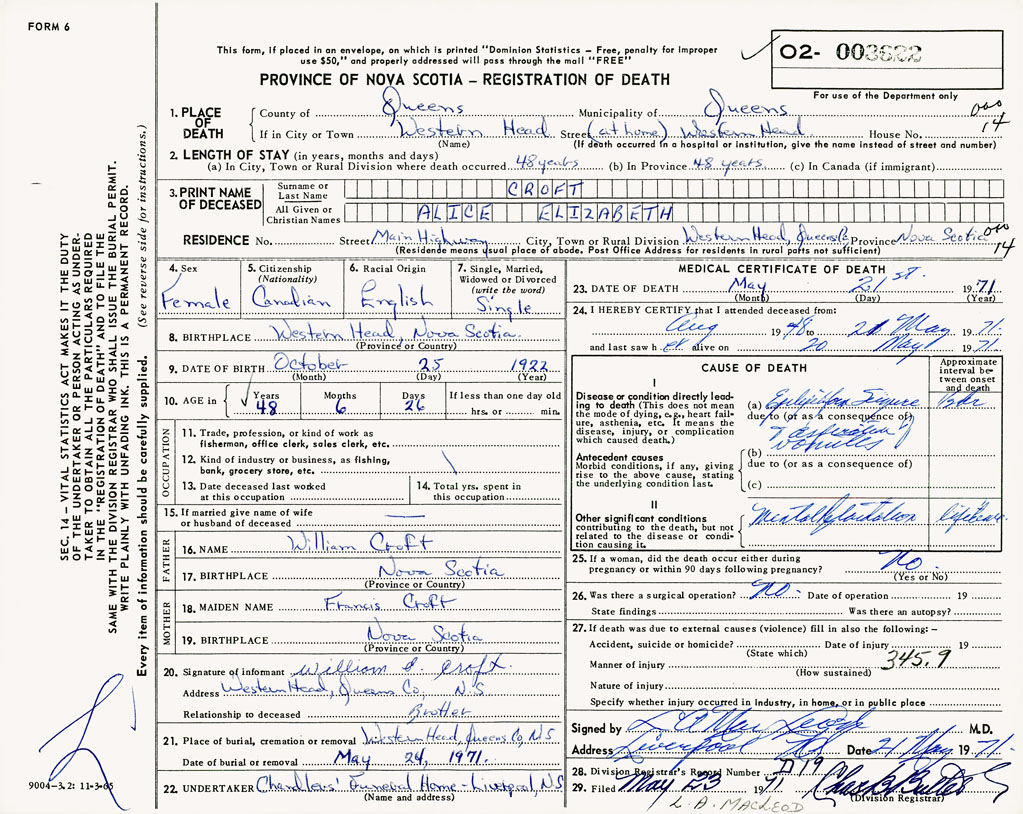 FORM 6
This form, if placed in an envelope, on which is printed "Dominion Statistics – Free, penalty for improper
use $50," and properly addressed will pass through the mail "FREE"
PROVINCE OF NOVA SCOTIA – REGISTRATION OF DEATH
02- 003632
For use of the Department only
000
14
1. PLACE OF DEATH
County of Queens Municipality of Queens
If in City or Town Western Head Street (at home) Western Head House No.
(Name) (If death occurred in a hospital or institution, give the name instead of street and number)
2. LENGTH OF STAY (in years, months and days)
(a) In City, Town or Rural Division where death occurred 48 years (b) In Province 48 years. (c) In Canada (if immigrant)
3. PRINT NAME OF DECEASED
Surname or Last Name CROFT
All Given or Christian Names ALICE ELIZABETH
RESIDENCE No. Street Main Highway City, Town or Rural Division Western Head, Queens Co Province Nova Scotia 000
14
(Residence means usual place of abode. Post Office Address for residents in rural parts not sufficient)
4. Sex
Female
5. Citizenship (Nationality)
Canadian
6. Racial Origin
English
7. Single, Married, Widowed or Divorced (write the word)
Single
8. BIRTHPLACE Western Head, Nova Scotia.
(Province or Country)
9. DATE OF BIRTH October 25 1922
(Month) (Day) (Year)
10. AGE in Years 48 Months 6 Days 26 If less than one day old hrs. or min.
OCCUPATION
11. Trade, profession, or kind of work as fisherman, office clerk, sales clerk, etc.
12. Kind of industry or business, as fishing, bank, grocery store, etc.
13. Date deceased last worked at this occupation
14. Total yrs. spent in this occupation
15. If married give name of wife or husband of deceased
FATHER
16. NAME William Croft
17. BIRTHPLACE Nova Scotia
(Province or Country)
MOTHER
18. MAIDEN NAME Francis Croft
19. BIRTHPLACE Nova Scotia
(Province or Country)
20. Signature of informant William E. Croft.
Address Western Head, Queens Co, N.S
Relationship to deceased Brother
21. Place of burial, cremation or removal Western Head, Queens Co, N.S
Date of burial or removal May 24, 1971.
22. UNDERTAKER Chandlers' Funeral Home - Liverpool, N.S
(Name and address)
MEDICAL CERTIFICATE OF DEATH
23. DATE OF DEATH May 21st. 1971
(Month) (Day) (Year)
24. I HEREBY CERTIFY that I attended deceased from:
Aug 1948 to 21 May 1971.
and last saw her alive on 20 May 1971.
CAUSE OF DEATH
Approximate interval between onset and death
I
Disease or condition directly leading to death (This does not mean the mode of dying, e.g., heart failure, asthenia, etc. It means the disease, injury, or complication which caused death.)
(a) Seizure
due to (or as a consequence of)
aspiration of
Antecedent causes
Morbid conditions, if any, giving rise to the above cause, stating the underlying condition last.
(b)
due to (or as a consequence of)
(c)
II
Other significant conditions contributing to the death, but not related to the disease or condition causing it.
Mental Retardation
25. If a woman, did the death occur either during pregnancy or within 90 days following pregnancy? No.
(Yes or No)
26. Was there a surgical operation? No. Date of operation 19
State findings Was there an autopsy?
27. If death was due to external causes (violence) fill in also the following: –
Accident, suicide or homicide? Date of injury 19
(State which)
345.9
Manner of injury
(How sustained)
Nature of injury
Specify whether injury occurred in industry, in home, or in public place
Signed by M.D.
Address Liverpool NS Date 21 May 1971.
28. Division Registrar's Record Number D19
29. Filed May 23 1971
(Division Registrar)
L. A. MACLEOD
SEC. 14 – VITAL STATISTICS ACT MAKES IT THE DUTY
OF THE UNDERTAKER OR PERSON ACTING AS UNDER-
TAKER TO OBTAIN ALL THE PARTICULARS REQUIRED
IN THE "REGISTRATION OF DEATH" AND TO FILE THE
SAME WITH THE DIVISION REGISTRAR WHO SHALL ISSUE THE BURIAL PERMIT.
WRITE PLAINLY WITH UNFADING INK. THIS IS A PERMANENT RECORD.
Every item of information should be carefully supplied. (See reverse side for instructions.)
9004–3.2: 11-3-65